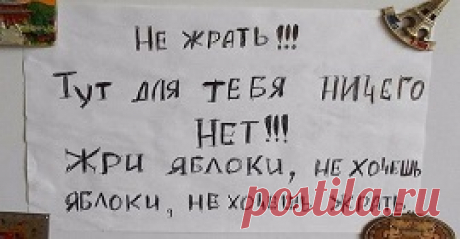 НЕ ЖРАТЬ!!!
ТУТ ДЛЯ ТЕБЯ НИЧЕГО
НЕТ!!!
ЖРИ ЯБЛОКИ, НЕ ХОЧЕШЬ
ЯБЛОКИ, НЕ ХОЧЕШЬ ЖРАТЬ.
postila.ru